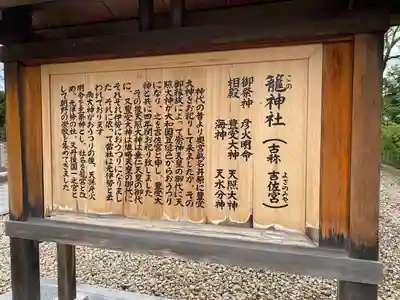 籠神社（古称 吉佐宮）
この
よさのみや
御祭神 彦火明命
相殿 豊受大神 天照大神
海神 天水分神
神代の昔より奥宮眞名井原に豊受
大神をお祀りして来ましたが、その
御縁故によって崇神天皇の御代に天
照大神が大和国笠縫邑からおうつり
になり、之を吉佐宮と申し、豊受大
神と共に四年間お祀り致しました。
その後天照大神は垂仁天皇の御代
に、又豊受大神は雄略天皇の御代に
それぞれ伊勢におうつりになりまし
た。それに依って當社は元伊勢と云
われております。
両大神がおうつりの後、天孫彦火
明命を主祭神とし、社名を籠宮と改
め、元伊勢の社、又丹後国一之宮と
して朝野の崇敬を集めてきました